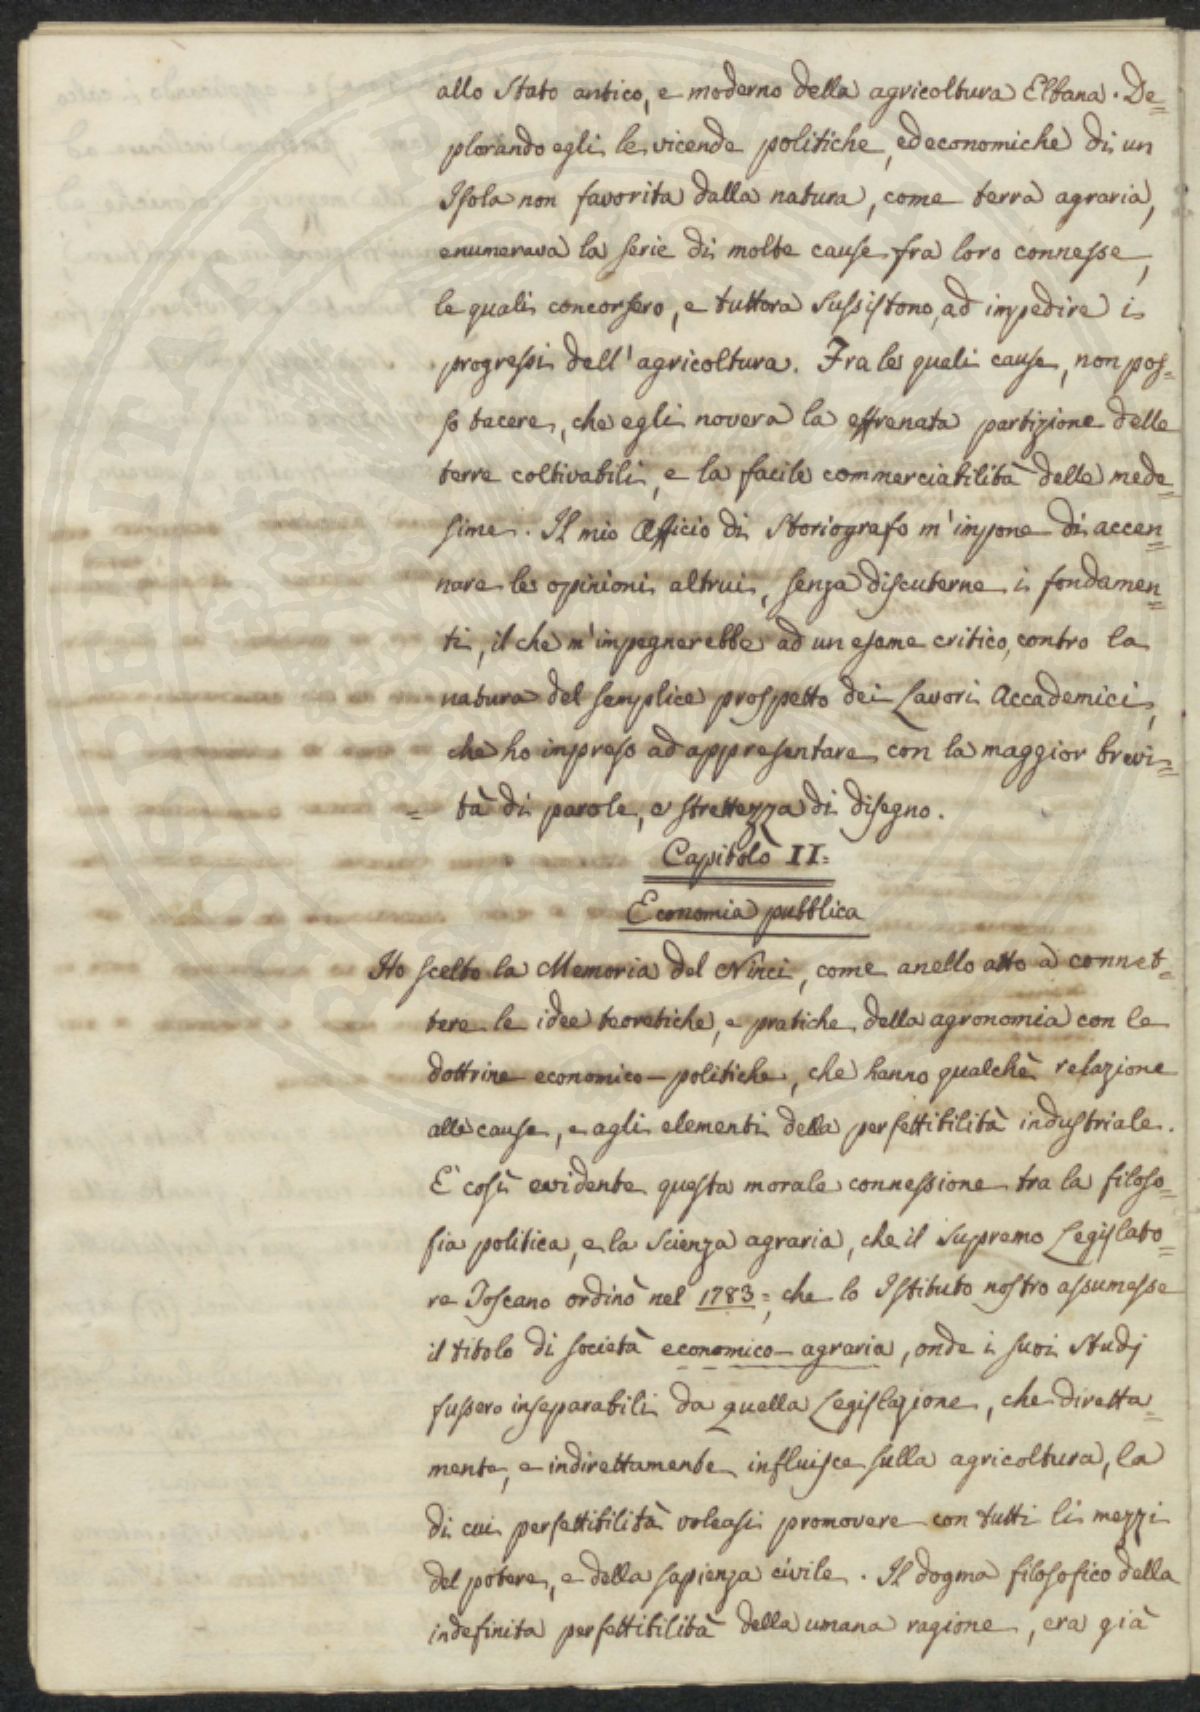 allo Stato antico, e moderno della agricoltura Elbana. De=
plorando egli le vicende politiche, ed economiche di un
Isola non favorita dalla natura, come terra agraria,
enumerava la serie di molte cause fra loro connesse,
le quali concorsero, e tuttora sussistono, ad impedire i
progressi dell'agricoltura. Fra le quali cause, non pos=
so tacere, che egli novera la effrenata partizione delle
terre coltivabili, e la facile commerciabilità delle mede=
sime. Il mio Officio di Storiografo m'impone di accen=
nare le opinioni altrui, senza discuterne i fondamen=
ti, il che m'impegnerebbe ad un esame critico, contro la
natura del semplice prospetto dei Lavori Accademici,
che ho impreso ad appresentare con la maggior brevi=
= tà di parole, e strettezza di disegno.
Capitolo II=
Economia pubblica
Ho scelto la Memoria del Ninci, come anello atto a connet=
tere le idee teoretiche, e pratiche della agronomia con le
dottrine economico-politiche, che hanno qualchè relazione
alle cause, e agli elementi della perfettibilità industriale.
E' così evidente questa morale connessione tra la filoso=
fia politica, e la scienza agraria, che il supremo Legislato=
re Toscano ordinò nel 1783=, che lo Istituto nostro assumesse
il titolo di società economico-agraria, onde i suoi Studj
fussero inseparabili da quella Legislazione, che diretta=
mente, e indirettamente influisce sulla agricoltura, la
di cui perfettibilità voleasi promovere con tutti li mezzi
del potere, e della sapienza civile. Il dogma filosofico della
indefinita perfettibilità della umana ragione, era già